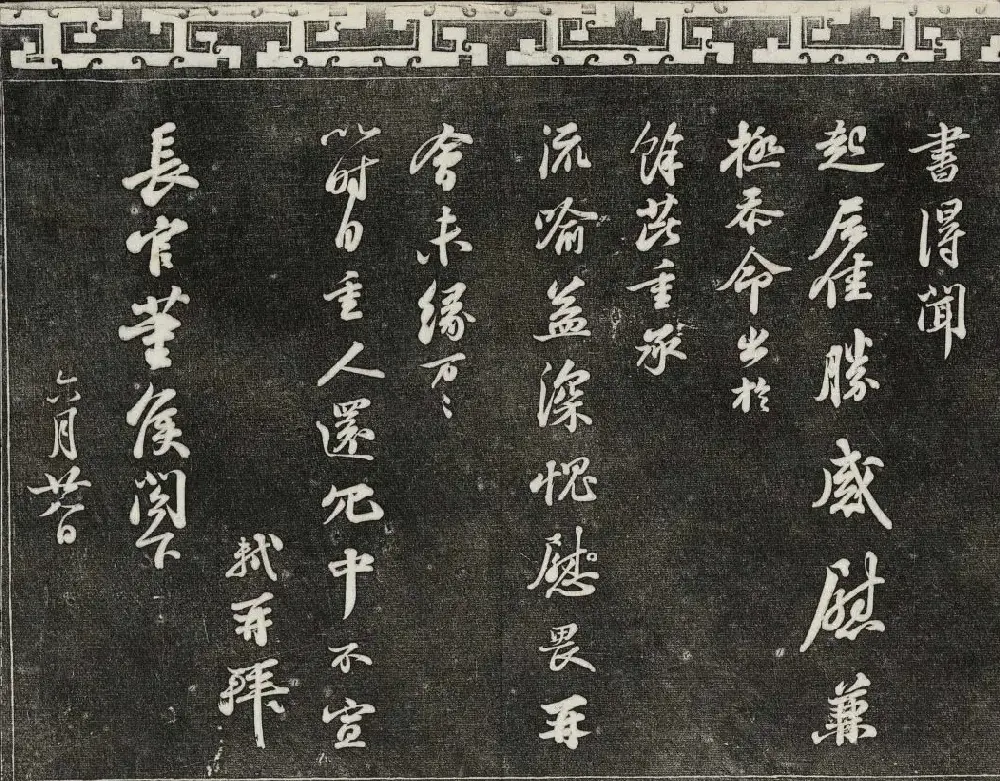 書得聞
起居佳勝感慰兼
極忝命出於
餘芘重承
流喻益深愧慰畏再
會未緣万〻
以時自重人還冗中不宣
軾再拜
長官董侯閣下
六月廿八日